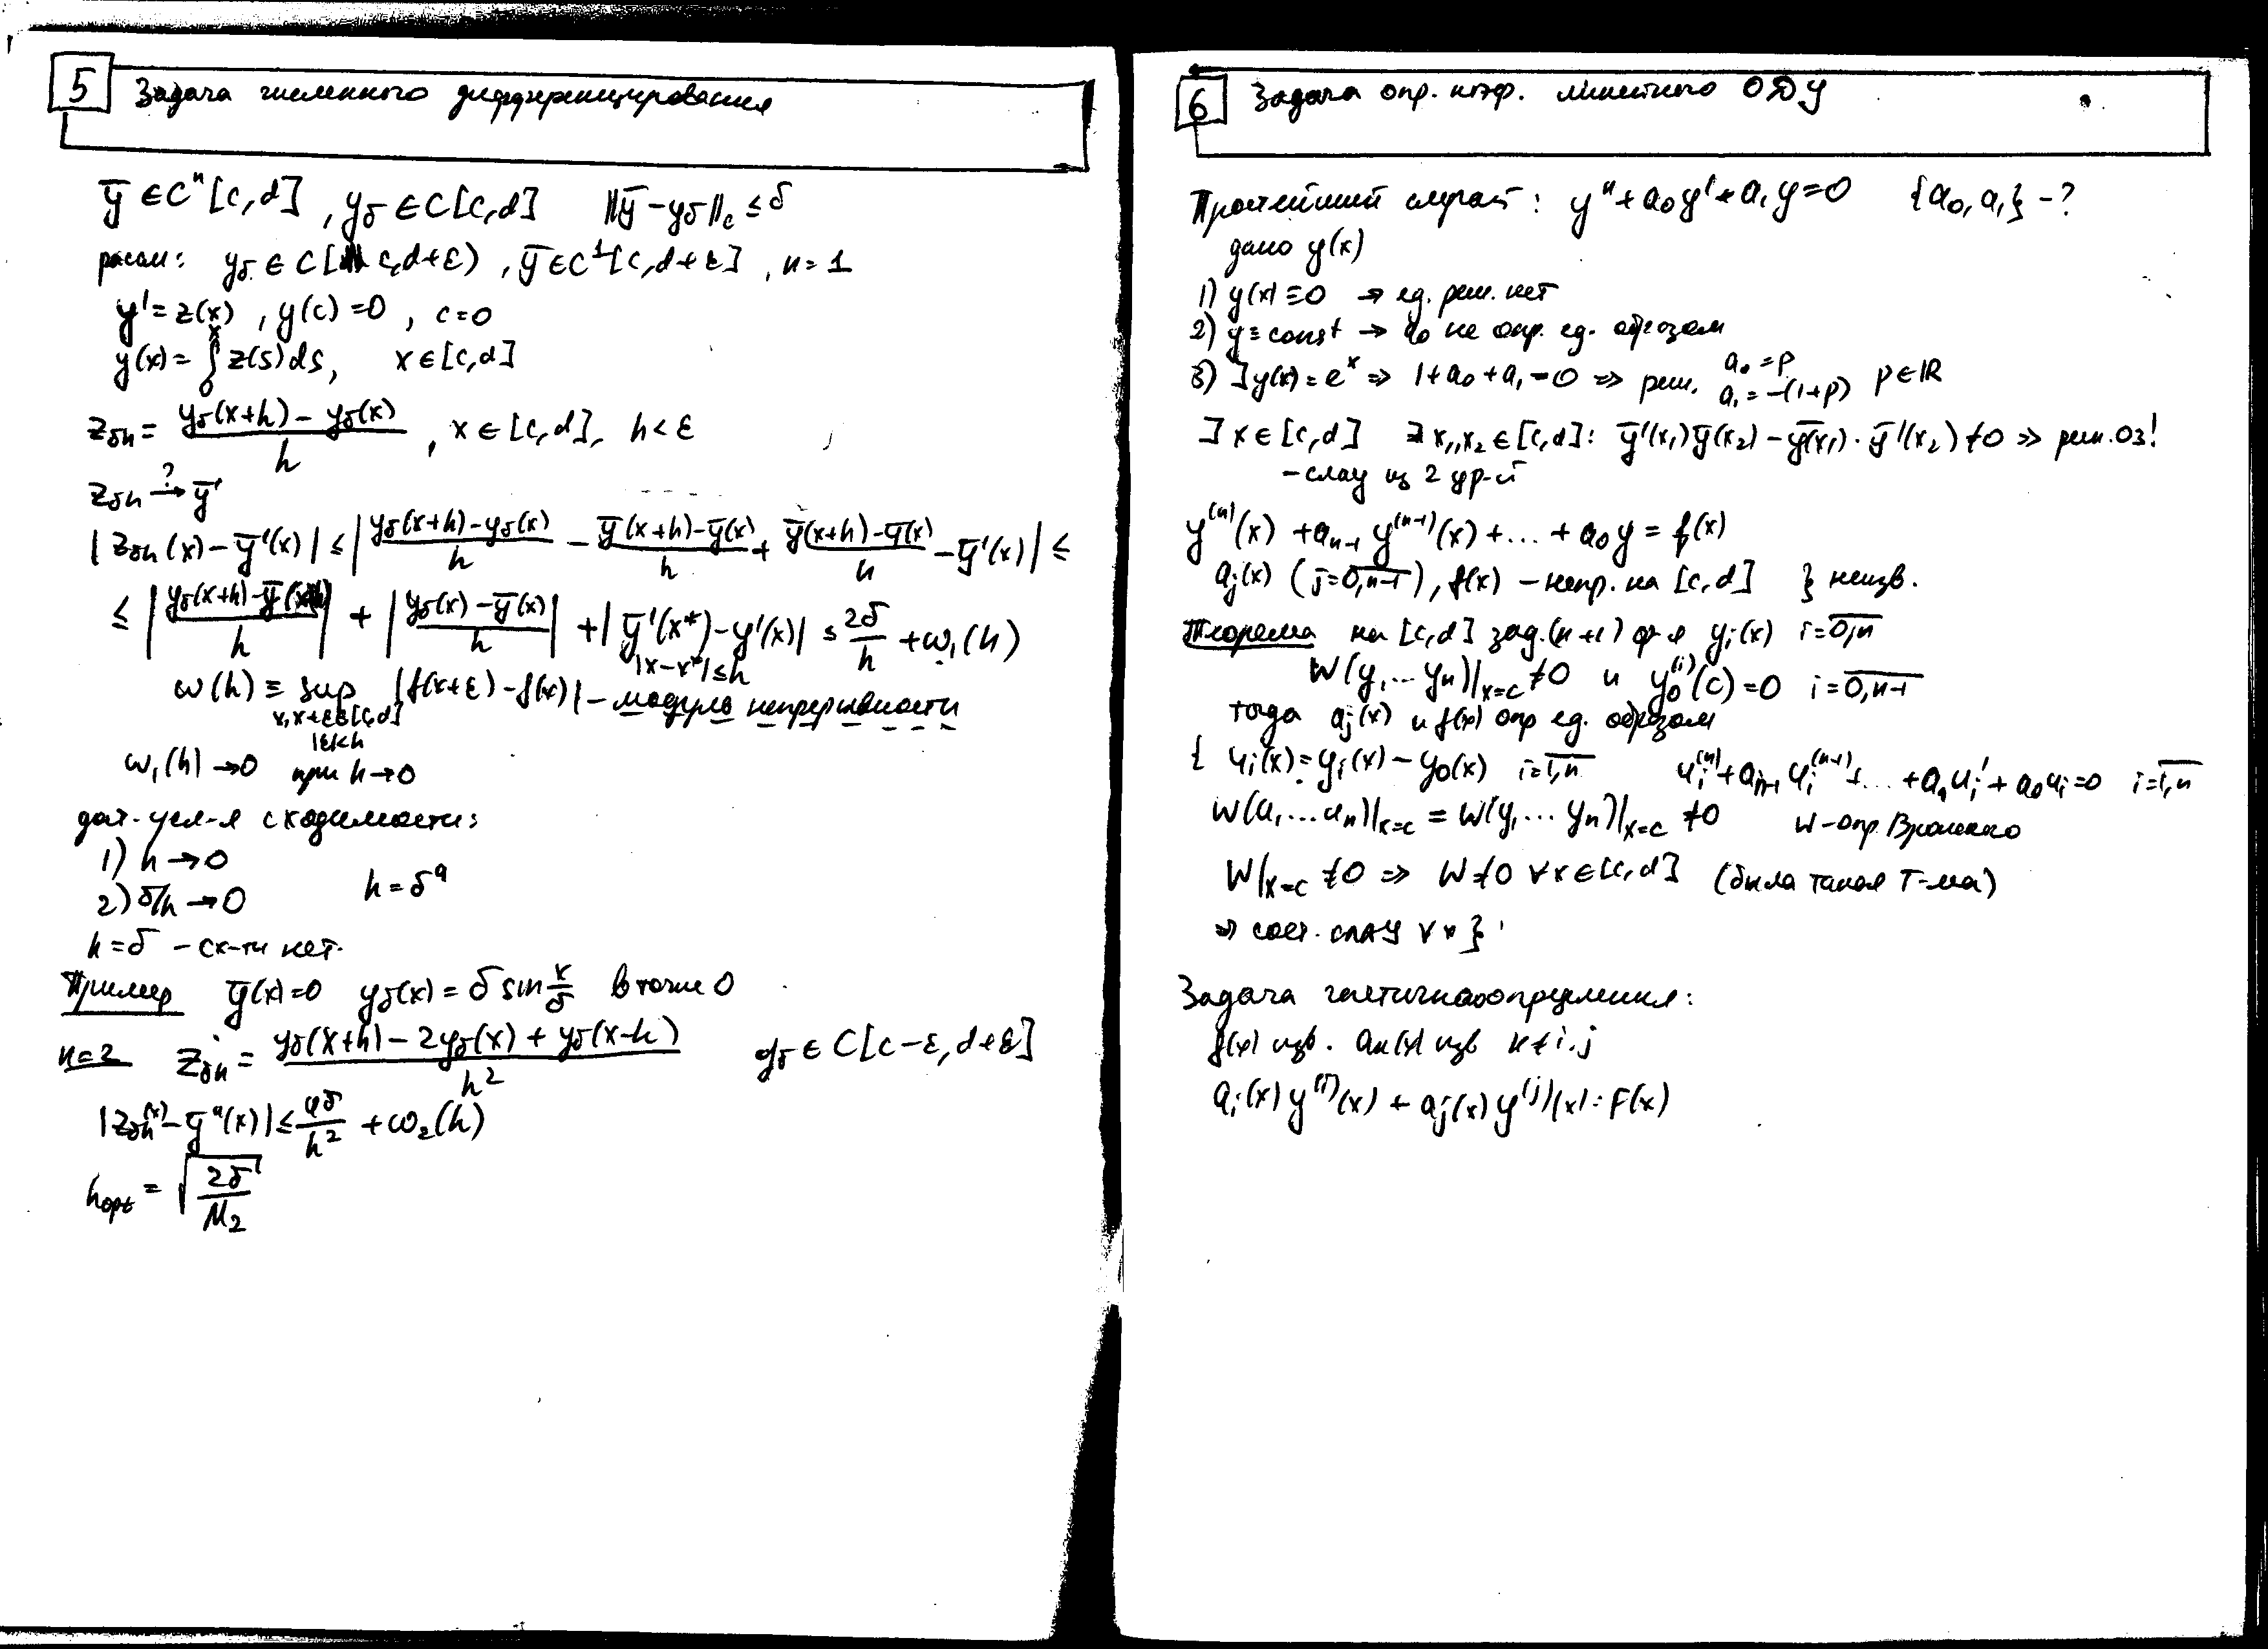 5 Задача численного дифференцирования
ȳ ∈ Cⁿ[c,d], y_δ ∈ C[c,d] ‖ȳ − y_δ‖_c ≤ δ
рассм: y_δ ∈ C[c,d+ε), ȳ ∈ C¹[c,d+ε], n=1
y' = z(x), y(c)=0, c=0
y(x) = ∫₀ˣ z(s)ds, x ∈ [c,d]
z_δh = (y_δ(x+h) − y_δ(x))/h, x ∈ [c,d], h<ε
z_δh →? ȳ'
|z_δh(x) − ȳ'(x)| ≤ |(y_δ(x+h) − y_δ(x))/h − (ȳ(x+h) − ȳ(x))/h + (ȳ(x+h) − ȳ(x))/h − ȳ'(x)| ≤
≤ |(y_δ(x+h) − ȳ(x+h))/h| + |(y_δ(x) − ȳ(x))/h| + |ȳ'(x*) − y'(x)| ≤ 2δ/h + ω₁(h)
|x−x*|≤h
ω(h) ≡ sup |f(x+ε) − f(x)| − модуль непрерывности
x,x+ε∈[c,d]
|ε|<h
ω₁(h) → 0 при h→0
дост. усл-я сходимости:
1) h → 0
2) δ/h → 0 h = δ^a
h = δ − сх-ти нет.
Пример ȳ(x)=0 y_δ(x) = δ sin x/δ в точке 0
n=2 z_δh = (y_δ(x+h) − 2y_δ(x) + y_δ(x−h))/h² y_δ ∈ C[c−ε, d+ε]
|z_δh(x) − ȳ''(x)| ≤ 4δ/h² + ω₂(h)
h_opt = √(2δ/M₂)
6 Задача опр. коэф. линейного ОДУ
Простейший случай: y'' + a₀y' + a₁y = 0 {a₀, a₁} −?
дано y(x)
1) y(x) ≡ 0 → ед. реш. нет
2) y ≡ const → a₀ не опр. ед. образом
3) ]y(x) = eˣ ⇒ 1+a₀+a₁=0 ⇒ реш. a₀ = p a₁ = −(1+p) p ∈ ℝ
]x ∈ [c,d] ∃ x₁,x₂ ∈ [c,d]: ȳ'(x₁)ȳ(x₂) − ȳ(x₁)·ȳ'(x₂) ≠ 0 ⇒ реш. ОЗ!
− слау из 2 ур-й
y⁽ⁿ⁾(x) + a_{n−1}y⁽ⁿ⁻¹⁾(x) + ... + a₀y = f(x)
a_j(x) (j=0,n−1), f(x) − непр. на [c,d] } неизв.
Теорема на [c,d] зад. (n+1) ф-я y_i(x) i=0,n
W(y₁...y_n)|_{x=c} ≠ 0 и y₀⁽ⁱ⁾(c)=0 i=0,n−1
тогда a_j(x) и f(x) опр ед. образом
{ u_i(x) = y_i(x) − y₀(x) i=1,n u_i⁽ⁿ⁾ + a_{n−1}u_i⁽ⁿ⁻¹⁾ + ... + a₁u_i' + a₀u_i = 0 i=1,n
W(u₁...u_n)|_{x=c} = W(y₁...y_n)|_{x=c} ≠ 0 W − опр. Вронского
W|_{x=c} ≠ 0 ⇒ W ≠ 0 ∀x∈[c,d] (была такая Т-ма)
⇒ сост. СЛАУ ∀x }
Задача частичного определения:
f(x) изв. a_k(x) изв k≠i,j
a_i(x)y⁽ⁱ⁾(x) + a_j(x)y⁽ʲ⁾(x) = F(x)